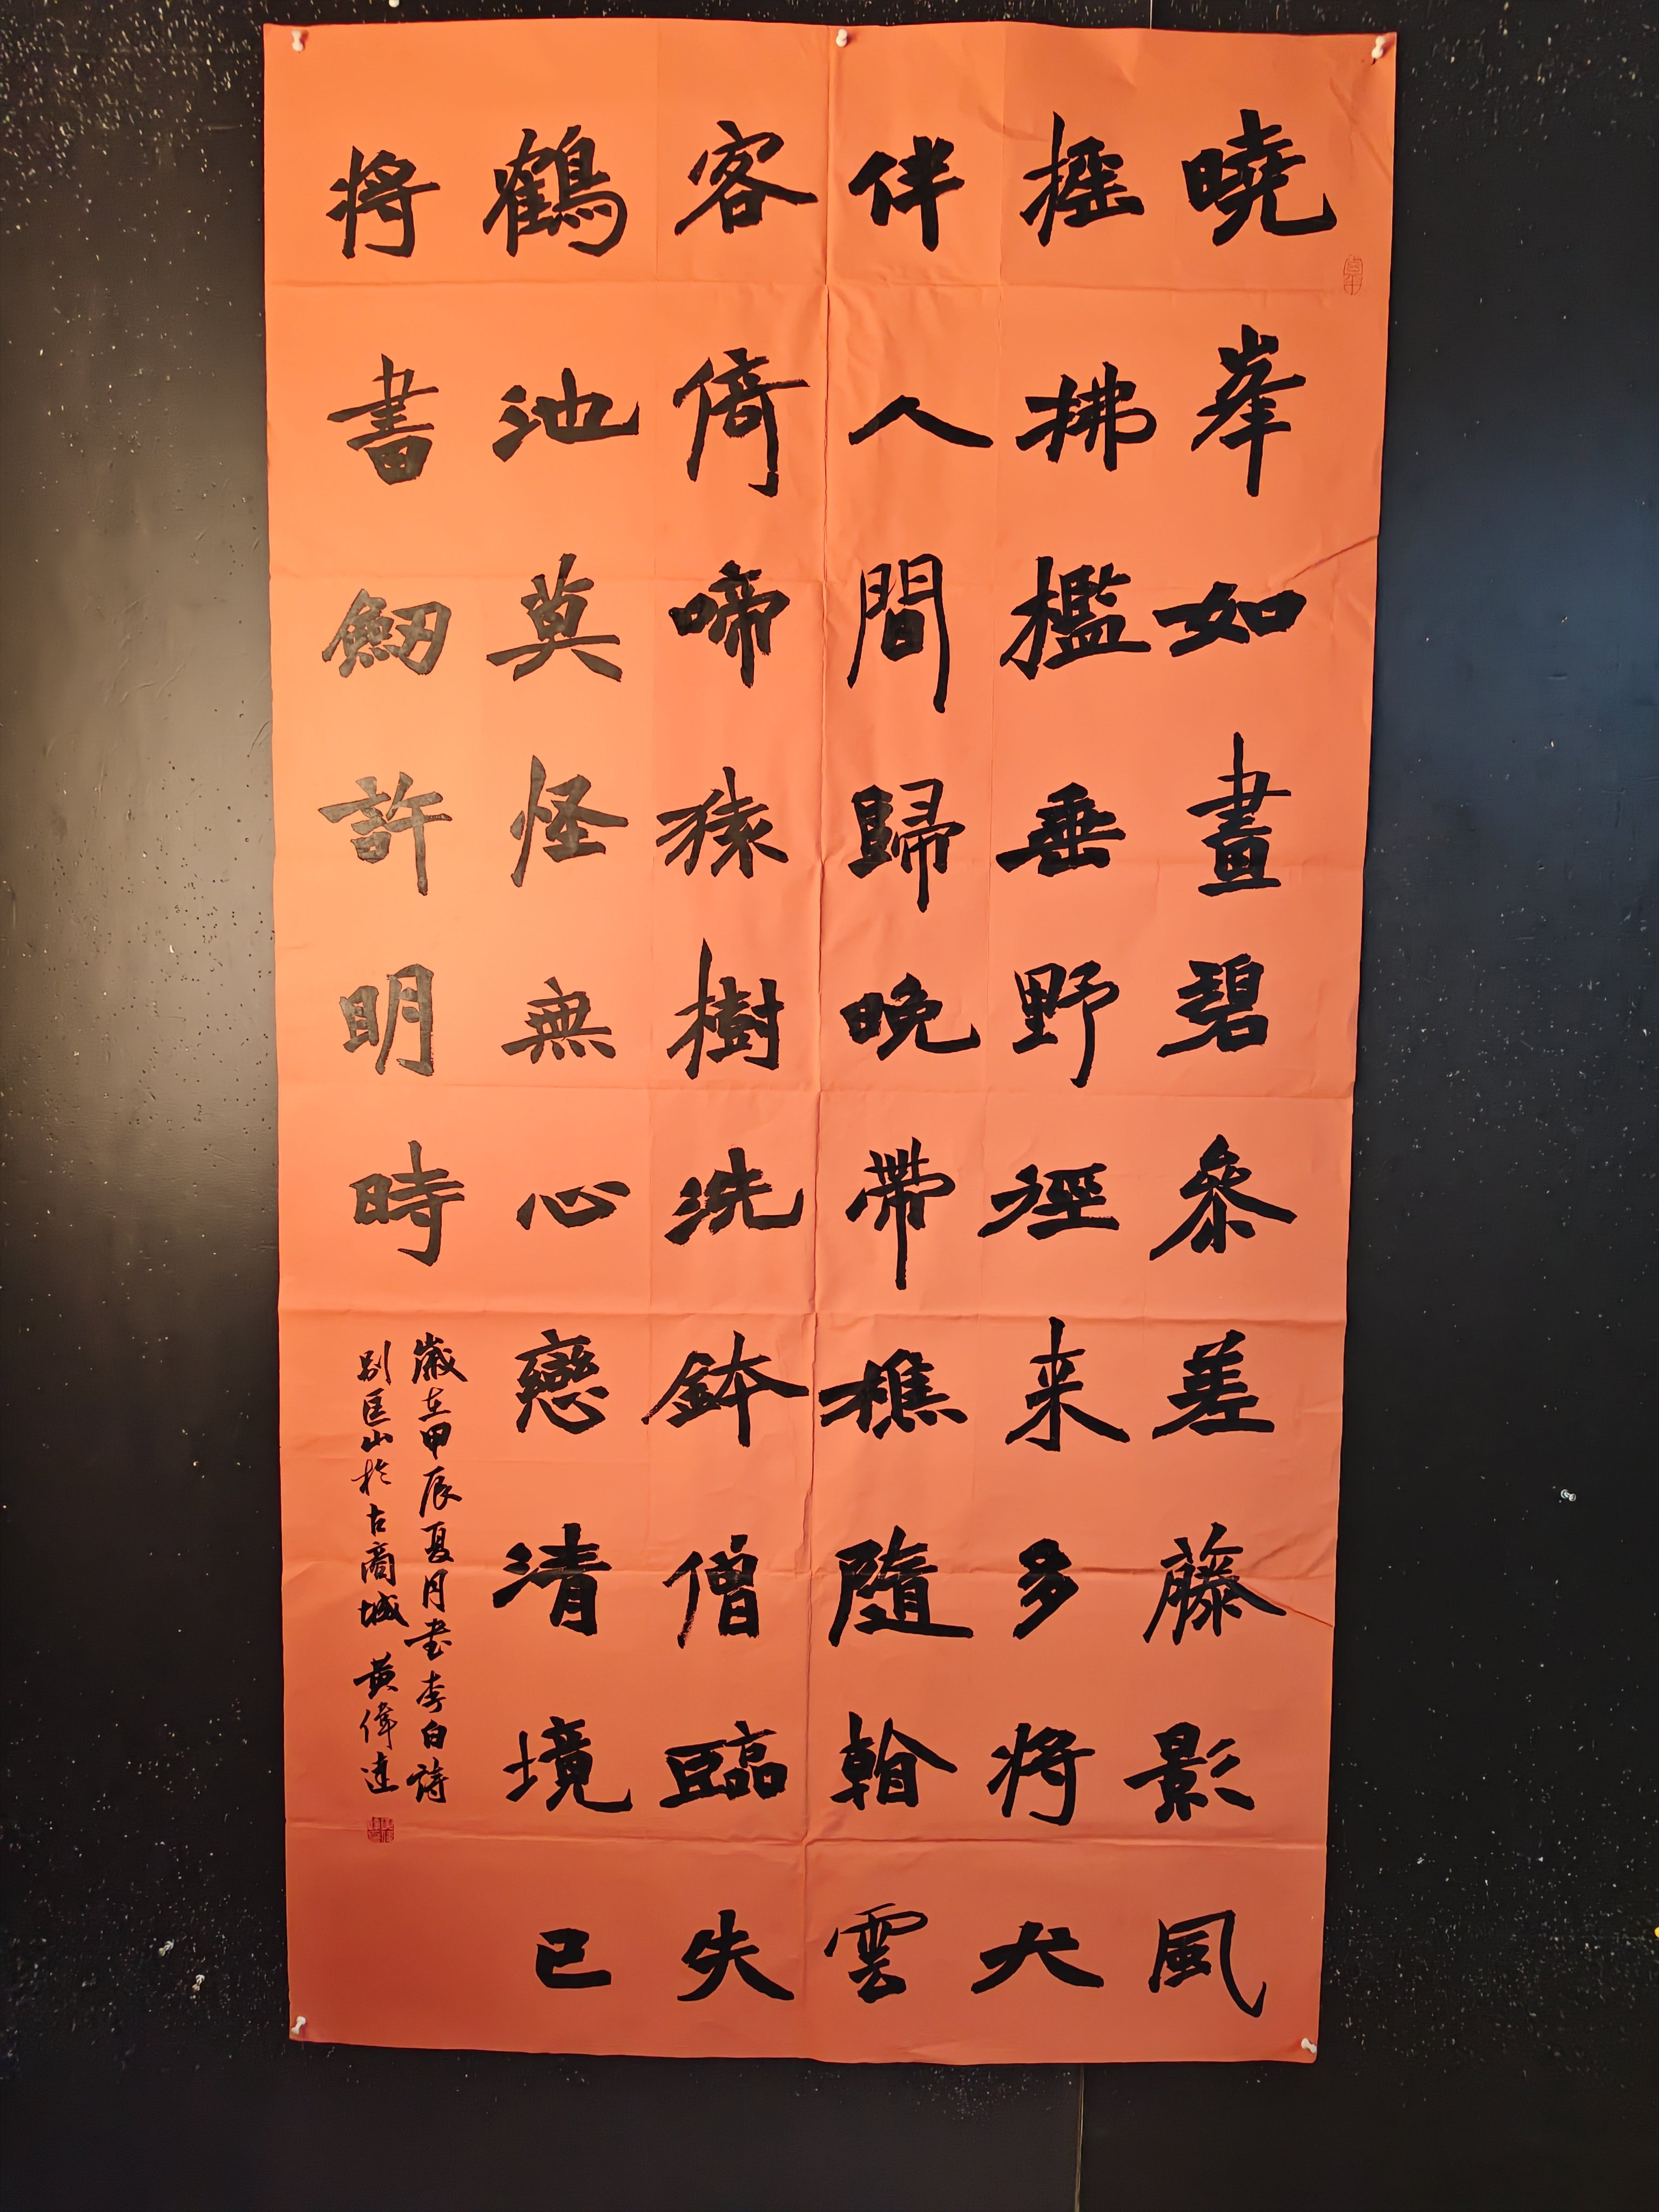 曉峯如畫碧參差藤影風
摇拂檻垂野徑来多將犬
伴人間歸晚帶樵隨翰雲
客倚啼猿樹洗鉢僧臨失
鶴池莫怪無心戀清境已
將書劒許明時
歲在甲辰夏月书李白詩
别匡山於古商城 黄偉達